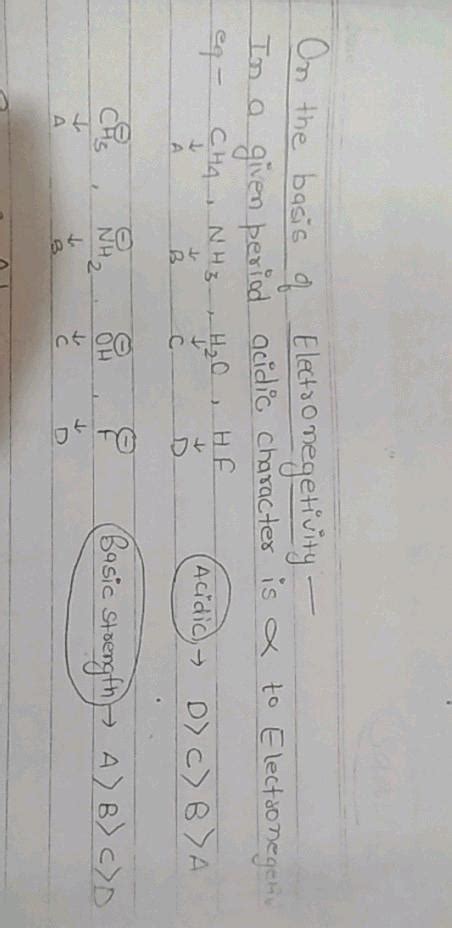 On the basis of Electromegetivity —
In a given period acidic character is ∝ to Electronegeti
eg - CH4, NH3, H2O, HF Acidic → D > C > B > A
↓ ↓ ↓ ↓
A B C D
⊖ ⊖ ⊖ ⊖
CH3, NH2, OH, F Basic strength → A > B > C > D
↓ ↓ ↓ ↓
A B C D